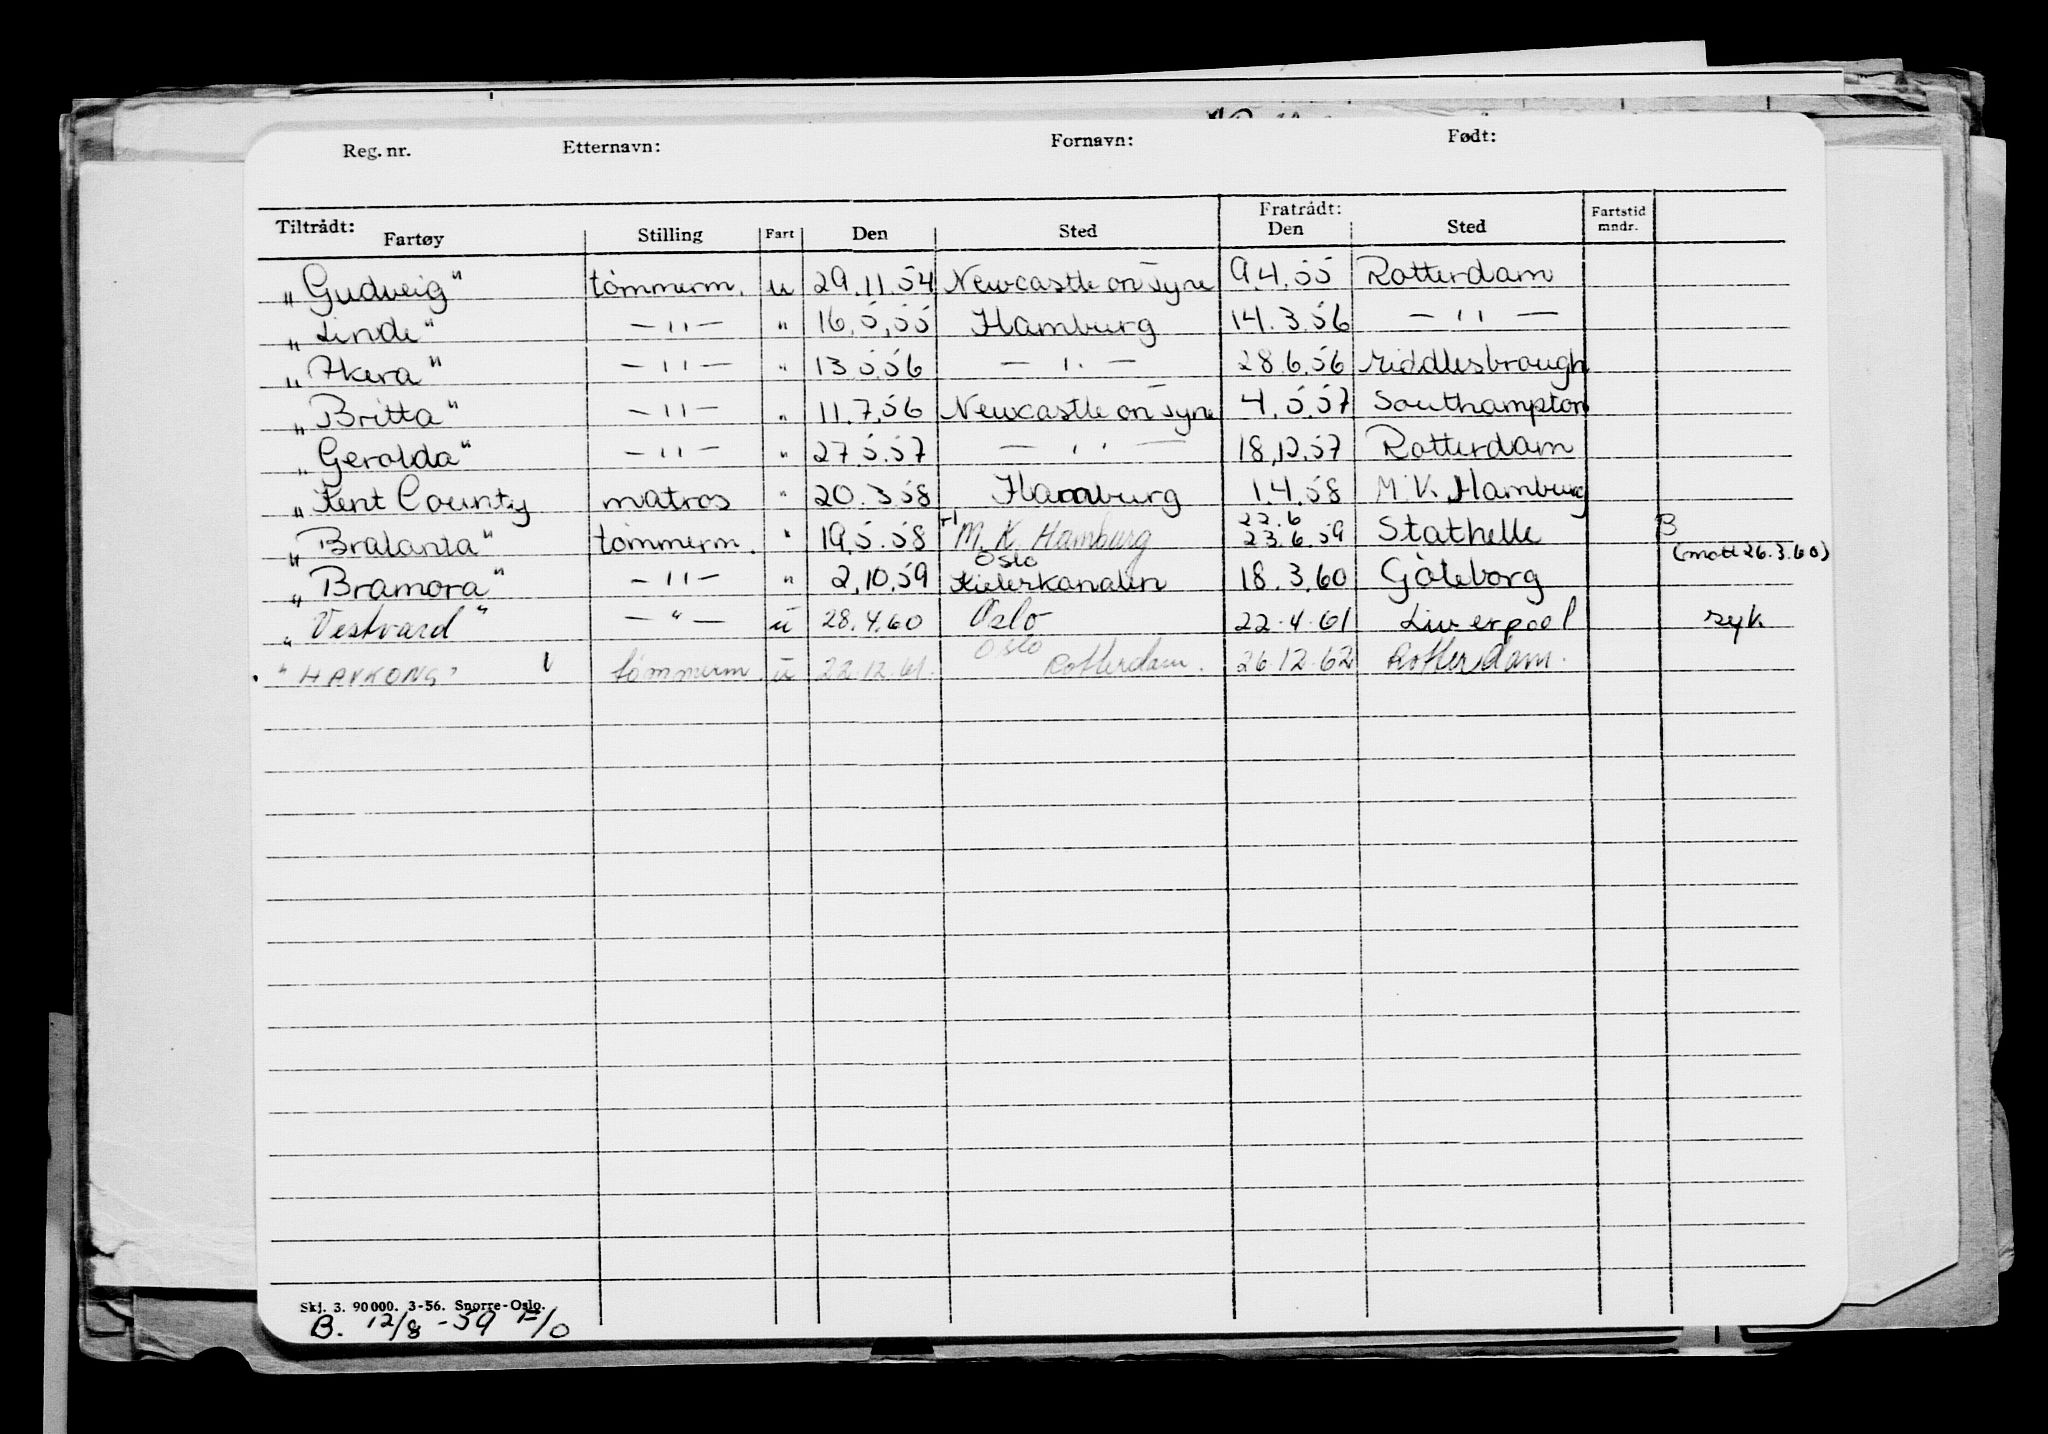 Reg. nr. Etternavn: Fornavn: Født:
Tiltrådt: Fratrådt: Fartstid
Fartøy Stilling Fart Den Sted Den Sted mndr.
"Gudveig" tömmerm. u 29.11.54 Newcastle on Tyne 9.4.55 Rotterdam
"Linde" —"— " 16.5.55 Hamburg 14.3.56 —"—
"Akera" —"— " 13.5.56 —"— 28.6.56 Middlesbrough
"Britta" —"— " 11.7.56 Newcastle on Tyne 4.5.57 Southampton
"Gerolda" —"— " 27.5.57 —"— 18.12.57 Rotterdam
"Kent County matros " 20.3.58 Hamburg 1.4.58 M.K. Hamburg
22.6
"Bralanta" tömmerm. " 19.5.58 M.K. Hamburg 23.6.59 Stathelle B
Oslo (mott 26.3.60)
"Bramora" —"— " 2.10.59 Kielerkanalen 18.3.60 Göteborg
"Vestvard" —"— u 28.4.60 Oslo 22.4.61 Liverpool syk
Oslo
"HAVKONG" tömmerm u 22.12.61. Rotterdam. 26.12.62 Rotterdam.
Skj. 3. 90000. 3-56. Snorre-Oslo.
B. 12/8 - 59 F/O